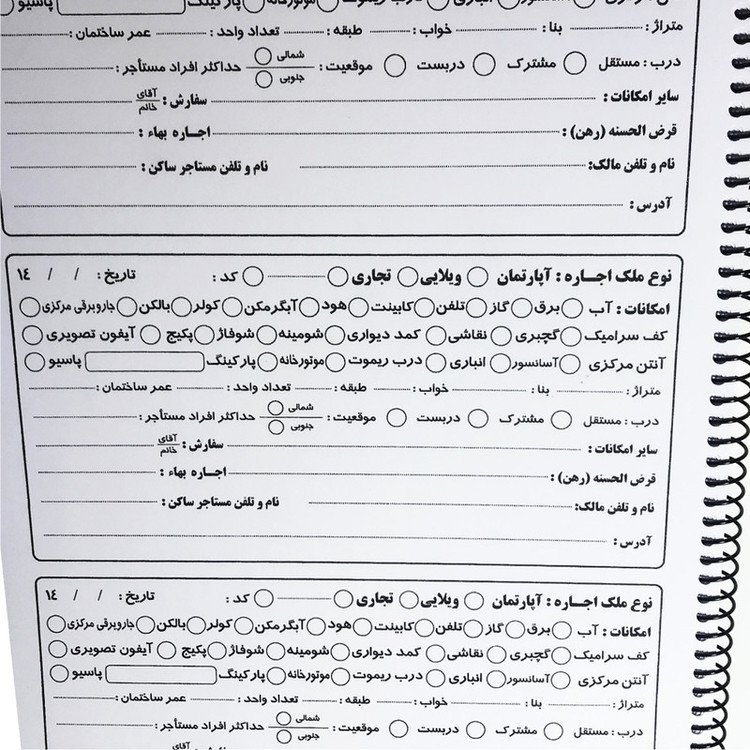 آنتن مرکزی آسانسور انباری درب ریموت موتورخانه پارکینگ پاسیو
متراژ : بنا : خواب : طبقه : تعداد واحد : عمر ساختمان :
درب : مستقل مشترک دربست موقعیت : شمالی جنوبی حداکثر افراد مستأجر :
سایر امکانات : سفارش : آقای خانم
قرض الحسنه (رهن) : اجـاره بهاء :
نام و تلفن مالک: نام و تلفن مستاجر ساکن :
آدرس :
نوع ملک اجـاره : آپارتمان ویلایی تجاری کد : تاریخ : / / ١٤
امکانات : آب برق گاز تلفن کابینت هود آبگرمکن کولر بالکن جاروبرقی مرکزی
کف سرامیک گچبری نقاشی کمد دیواری شومینه شوفاژ پکیج آیفون تصویری
آنتن مرکزی آسانسور انباری درب ریموت موتورخانه پارکینگ پاسیو
متراژ : بنا : خواب : طبقه : تعداد واحد : عمر ساختمان :
درب : مستقل مشترک دربست موقعیت : شمالی جنوبی حداکثر افراد مستأجر :
سایر امکانات : سفارش : آقای خانم
قرض الحسنه (رهن) : اجـاره بهاء :
نام و تلفن مالک: نام و تلفن مستاجر ساکن :
آدرس :
نوع ملک اجـاره : آپارتمان ویلایی تجاری کد : تاریخ : / / ١٤
امکانات : آب برق گاز تلفن کابینت هود آبگرمکن کولر بالکن جاروبرقی مرکزی
کف سرامیک گچبری نقاشی کمد دیواری شومینه شوفاژ پکیج آیفون تصویری
آنتن مرکزی آسانسور انباری درب ریموت موتورخانه پارکینگ پاسیو
متراژ : بنا : خواب : طبقه : تعداد واحد : عمر ساختمان :
درب : مستقل مشترک دربست موقعیت : شمالی جنوبی حداکثر افراد مستأجر :
آقای